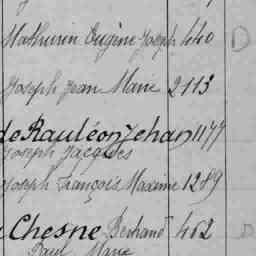 Mathurin Eugène Joseph 440 D
Joseph Jean Marie 2113
de Rauléon Jehan 1177
Joseph Jacques
Joseph François Maxime 1289
Chesne Bertrand 462 D
Paul Marie